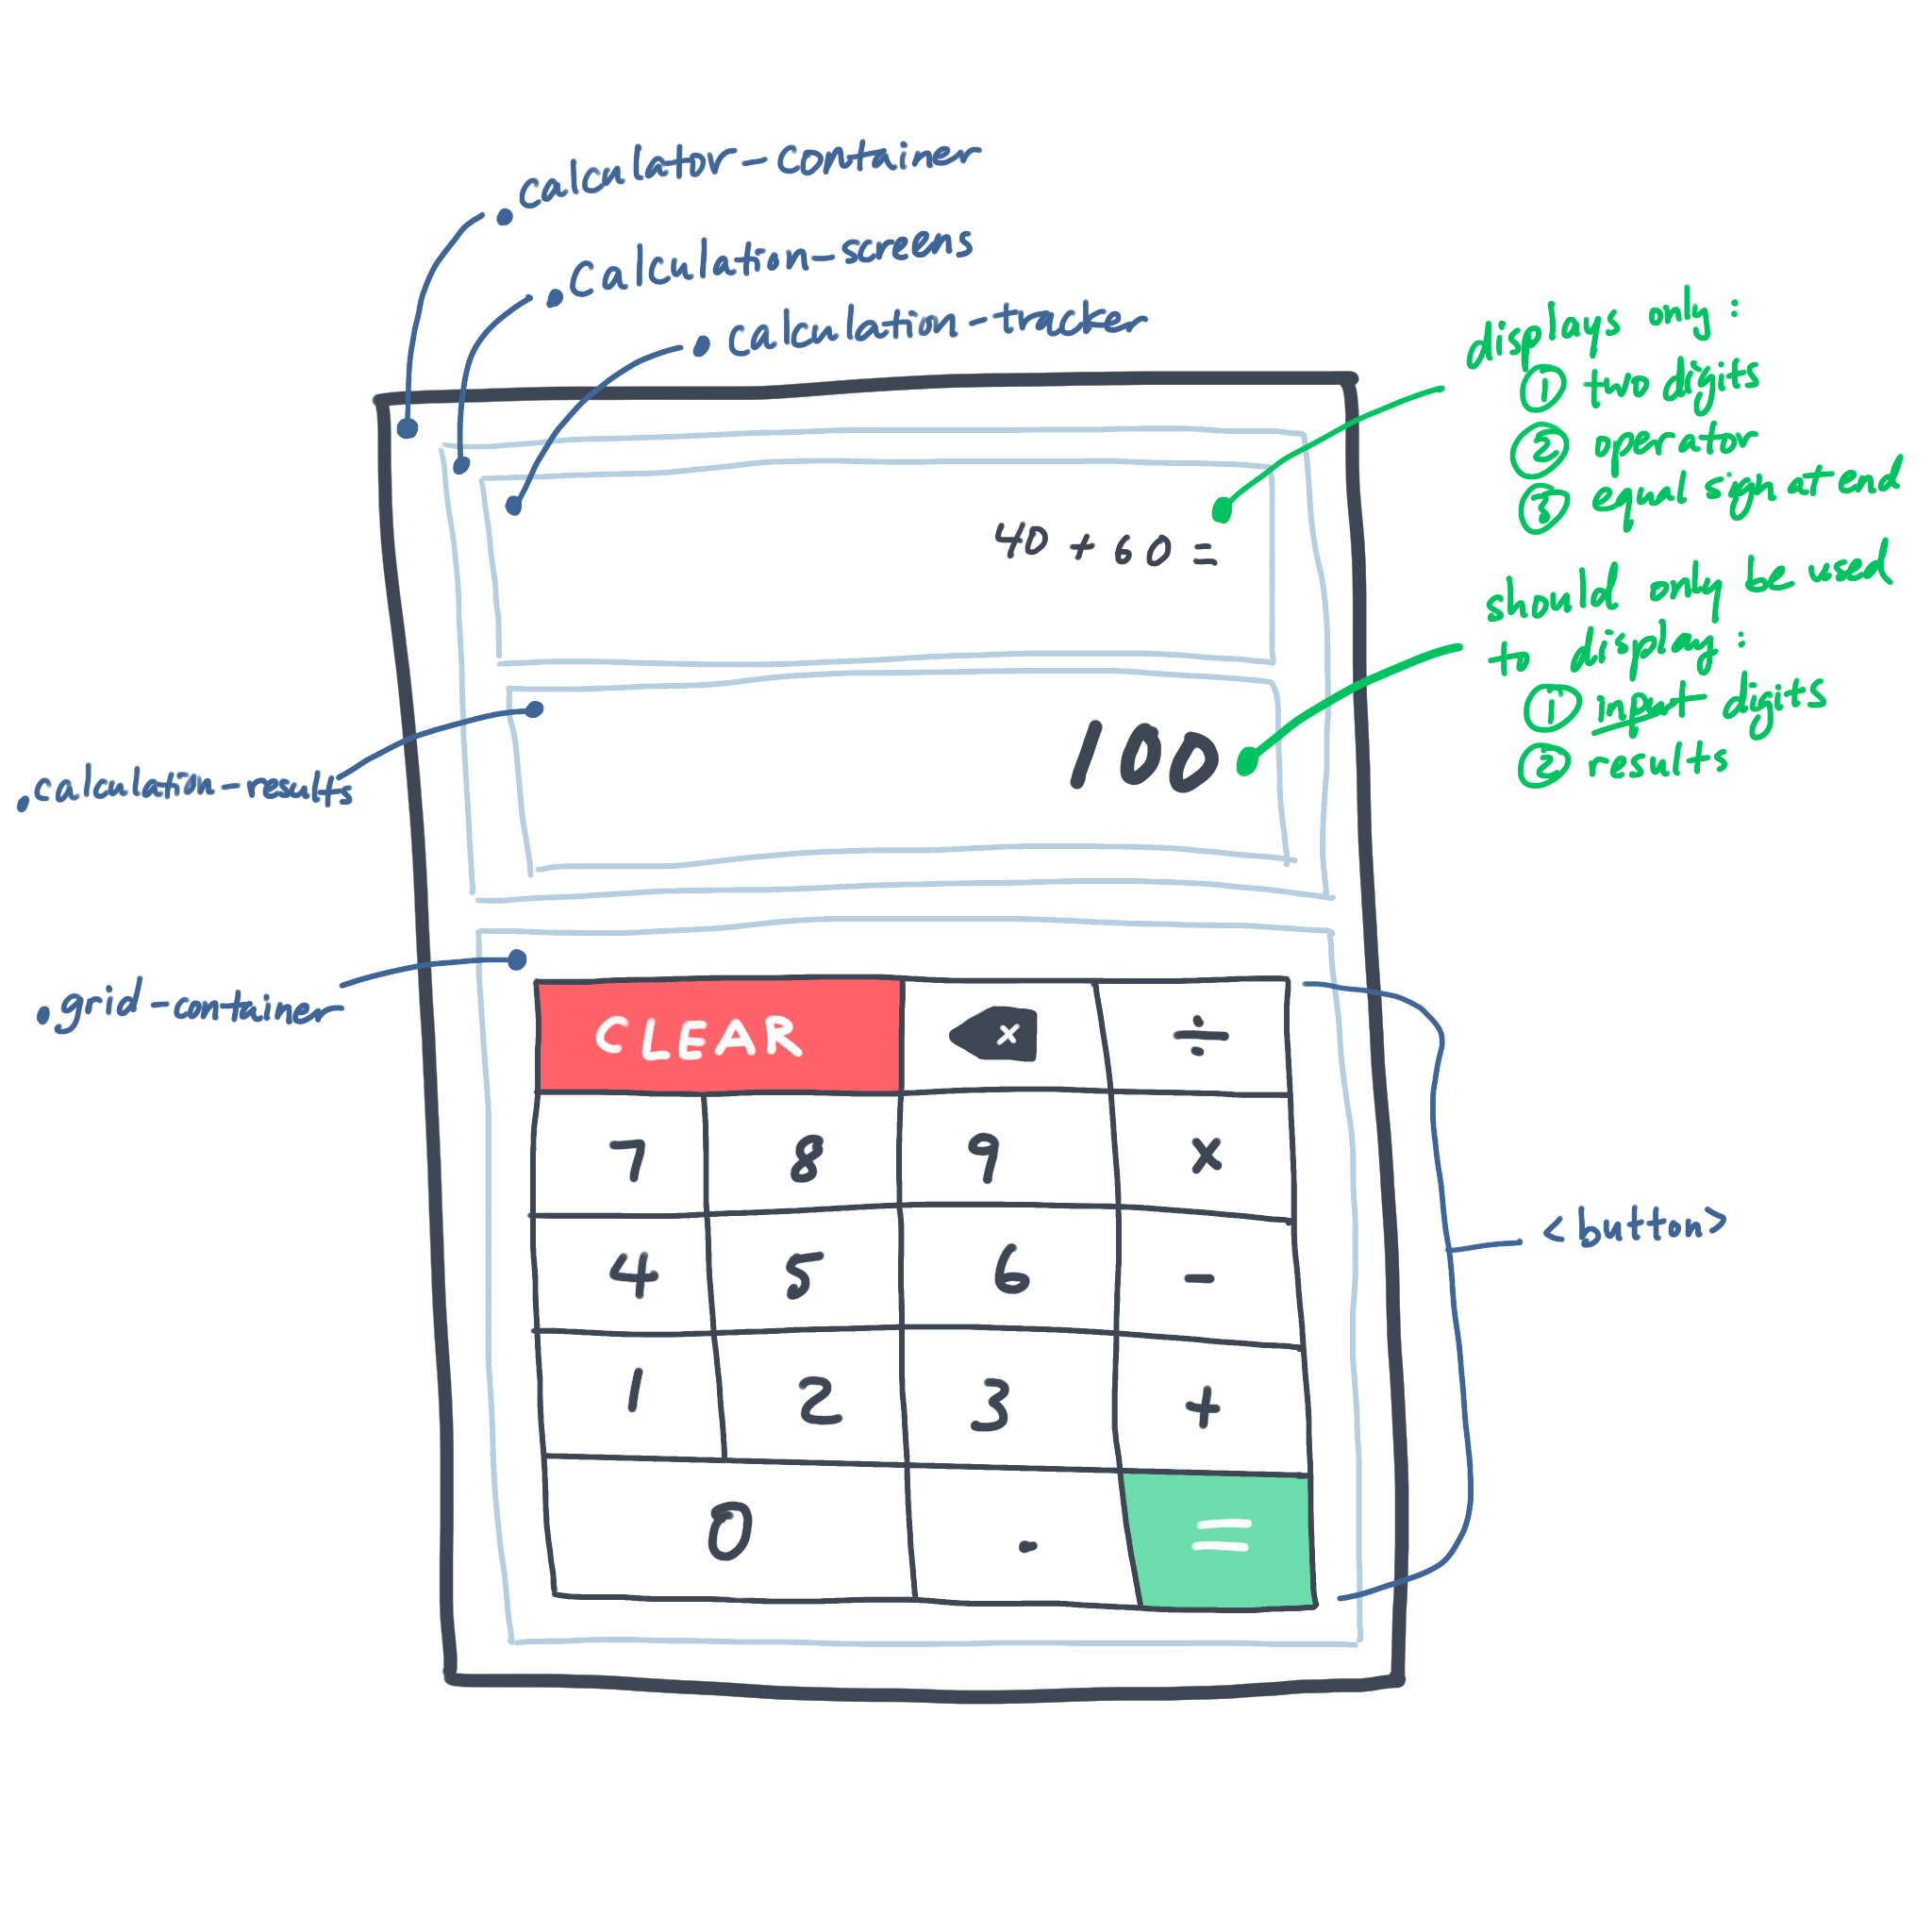 .calculator-container
.Calculation-screens
.calculation-tracker
displays only:
① two digits
② operator
③ equal sign at end
40 + 60 =
should only be used
to display:
① input digits
② results
100
.calculation-results
.grid-container
CLEAR × ÷
7 8 9 ×
<button>
4 5 6 -
1 2 3 +
0 . =